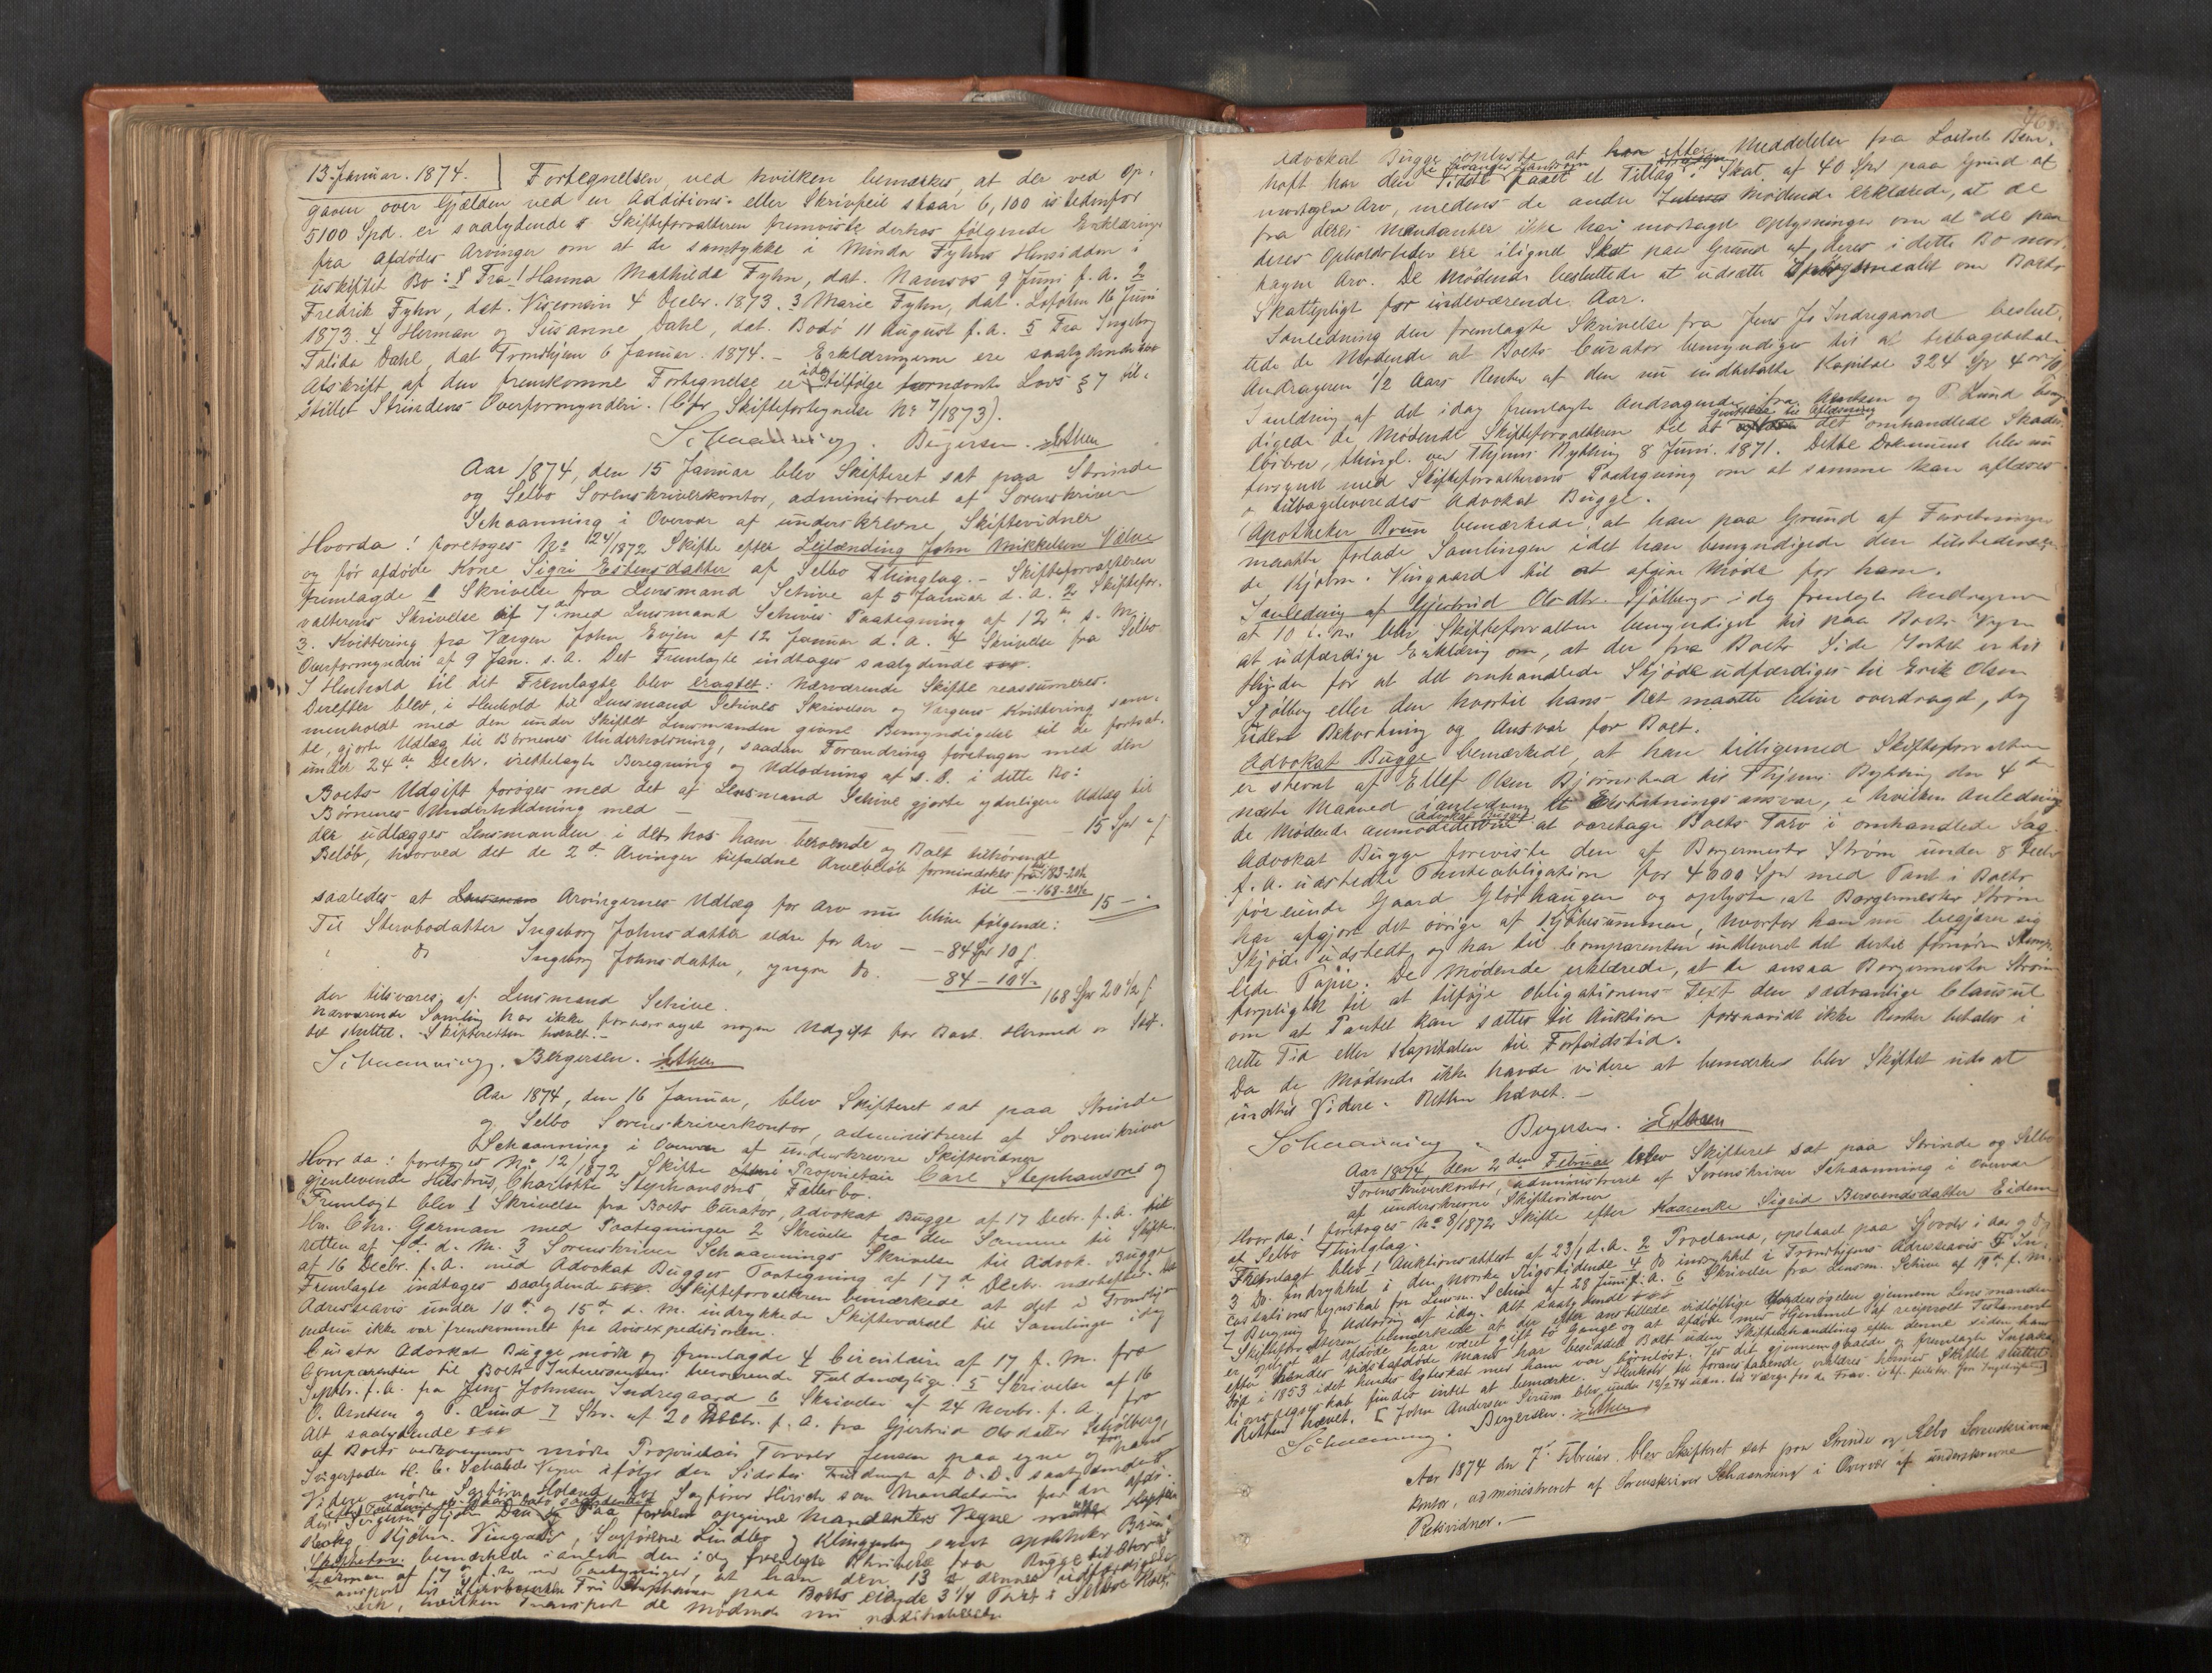 13. Januar. 1874.
Fortegnelsen, ved hvilken bemærkes, at der ved Op-
gaven over Gjælden ved en Additions- eller Skrivfeil staar 6,100 istedenfor
5100 Spd. er saalydende Skifteforvalteren fremviste derhos følgende Erklæringer
fra Afdødes Arvinger om at de samtykke i Minda Fyhns Hensidden i
uskiftet Bo: 1 Fra Hanna Mathilde Fyhn, dat. Namsos 9 Juni f. A. 2
Fredrik Fyhn, dat. 4 Decbr. 1873. 3 Marie Fyhn, dat. Lofoten 16 Juni
1873. 4 Herman og Susanne Dahl, dat. Bodö 11 August f. A. 5 Fra Ingeborg
Talida Dahl, dat. Trondhjem 6 Januar. 1874. – Erklæringerne ere saalydende
Afskrift af den fremkomne Fortegnelse er idag tilfølge Lovs § 7 til-
stillet Strindens Overformynderi. (Cfr Skiftefortegnelse No 7/1873).
Schaanning. Bergersen. Esthen
Aar 1874, den 15 Januar blev Skifteret sat paa Strinde
og Selbo Sorenskriverkontor, administreret af Sorenskriver
Schaanning i Overvær af underskrevne Skiftevidner
Hvorda! foretoges No 24/1872 Skifte efter Leilænding John Mikkelsen
og før afdøde Kone Sigri Estensdatter af Selbo Thinglag. – Skifteforvalteren
fremlagde 1 Skrivelse fra Lensmand Schive af 5 Januar d. A. 2 Skiftefor-
valterens Skrivelse af 7de med Lensmand Schives Paategning af 12te s. M.
3. Kvittering fra Værgen John Evjen af 12 Januar d. A. 4 Skrivelse fra Selbo
Overformynderi af 9 Jan. s. A. Det Fremlagte indtages saalydende
I Henhold til det Fremlagte blev eragtet: Nærværende Skifte reassumeres.
Derefter blev, i Henhold til Lensmand Schives Skrivelser og Værgens Kvittering sam-
menholdt med den under Skiftet Lensmanden givne Bemyndigelse til de fortsat-
te, gjorte Udlæg til Börnenes Underholdning, saadan Forandring foretagen med den
under 24de Decbr. irettelagte Beregning og Udlodning af s. D. i dette Bo:
Boets Udgift forøges med det af Lensmand Schive gjorte yderligere Udlæg til
Börnenes Underholdning med – 15 Spd
der udlægges Lensmanden i det hos ham beroende og Boet tilhørende
Beløb, hvorved det de 2de Arvinger tilfaldne Arvebeløb formindskes fra 183-20½
til – 168-20½ 15 – "
saaledes at Arvingernes Udlæg for Arv nu blive følgende:
Til Stervbodatter Ingeborg Johnsdatter ældre for Arv – 84 Spd 10
" Do Ingeborg Johnsdatter, yngre Do. – 84 – 10¼
168 Spd 20½
der tilsvares af Lensmand Schive.
Nærværende Samling har ikke foraarsaget nogen Udgift for Boet. Hermed er Skif-
tet sluttet. – Skifteretten hævet. –
Schaanning. Bergersen. Esthen
Aar 1874, den 16 Januar, blev Skifteret sat paa Strinde
og Selbo Sorenskriverkontor, administreret af Sorenskriver
Schaanning i Overvær af underskrevne Skiftevidner
Hvor da! foretoges No 12/1872 Skifte efter Proprietair Carl Stephansons og
gjenlevende Hustrus, Charlotte Stephansons, Fællesbo.
Fremlagt blev 1 Skrivelse fra Boets Curator, Advokat Bugge af 17 Decbr. f. A. til
Hr. Chr. Garman med Paategninger 2 Skrivelse fra den Samme til Skifte-
retten af d. M. 3 Sorenskriver Schaannings Skrivelse til Advok. Bugge
af 16 Decbr. f. A. med Advokat Bugges Paategning af 17de Decbr.
Fremlagte indtages saalydende Skifteforvalteren bemærkede at det i Trondhjems
Adresseavis under 10de og 15de d. M. indrykkede Skiftevarsel til Samlingen idag
endnu ikke var fremkommet fra Avisexpeditionen.
Curator Advokat Bugge mødte og fremlagde 4 Circulaire af 17 f. M. fra
Comparenten til Boets Interessenter 5 Skrivelse af 16
Septbr. f. A. fra Jens Johnsen Indregaard 6 Skrivelse af 24 Novbr. f. A. fra
O. Arntsen og P. Lund 7 Skr. af 20 Decbr. f. A. fra Gjertrud Olsdatter Sjølberg,
Alt saalydende
af Boets vedkommende mødte Proprietair Torvald Jensen paa egne og
Svigerfader H. C. Vegne ifølge den Sidstes Fuldmagt af D. D. saalydende
Videre mødte Sagfører Hirsch som Mandatarius for
opgivne Mandanters Vegne mødte
Kjøbm. Vingaard, Sagførerne Lindbo og Klingenberg samt Apotheker Brun
bemærkede i Anledn. den idag fremlagte Skrivelse fra Bugge til
Garman af 17 f. M. med Paategninger, at han den 13de dennes udfærdigede
Transport til Stephanson paa Boets eiende 3¼ Part i Selboe
hvilken Transport de Mødende nu
468
Advokat Bugge oplyste at efter Meddelelse fra
hoft har den faaet et Tillæg i Skat af 40 Spd paa Grund af
modtagen Arv, medens de andre Mødende erklærede, at de
fra deres Mandanter ikke har modtaget Oplysninger om at de paa
deres Opholdssteder ere ilignet Skat paa Grund af deres i dette Bo mod-
tagne Arv. De Mødende besluttede at udsætte Spørgsmaalet om Boets
Skattepligt for indeværende Aar.
I Anledning den fremlagte Skrivelse fra Jens Js Indregaard beslut-
tede de Mødende at Boets Curator bemyndiges til at tilbagebetale
Andrageren 1/2 Aars Renter af den nu indbetalte Kapital 324 Spd
I Anledning af det idag fremlagte Andragende fra Arntsen og P. Lund bemyn-
digede de Mødende Skifteforvalteren til at qvittere til Aflæsning det omhandlede Skades-
løsbrev, thingl. ved Thjems Bything 8 Juni. 1871. Dette Dokument blev nu
forsynet med Skifteforvalterens Paategning om at samme kan aflæses
og tilbageleveredes Advokat Bugge.
Apotheker Brun bemærkede, at han paa Grund af Forretninger
maatte forlade Samlingen idet han bemyndigede den tilstedeværen-
de Kjøbm. Vingaard til at afgive Møde for ham.
I Anledning af Gjertrud Olsdtr. Sjølbergs idag fremlagte Andragende
at blev Skifteforvalteren bemyndiget til paa Boets Vegne
at udfærdige Erklæring om, at der fra Boets Side Intet er til
Hinder for at det omhandlede Skjøde udfærdiges til Erik Olsen
Sjølberg eller den hvortil hans Ret maatte blive overdraget, dog
uden Bekostning og Ansvar for Boet.
Advokat Bugge bemærkede, at han tilligemed Skifteforvalteren
er stevnt af Ellef Olsen Bjørnstad til Thjems Bything den 4de
næste Maaned i Anledning et Erstatningsansvar, i hvilken Anledning
de Mødende anmodede Advokat Bugge at varetage Boets Tarv i omhandlede Sag.
Advokat Bugge foreviste den af Borgermester Strøm under 8 Decbr
f. A. udstedte Panteobligation for 4000 Spd med Pant i Boets
før eiende Gaard Gløshaugen og oplyste at Borgermester Strøm
har afgjort det øvrige af Kjøbesummen, hvorfor han nu begjærer sig
Skjøde udstedt, og har til Comparenten indleveret det dertil fornødne Stemp-
lede Papir. De Mødende erklærede, at de ansaa Borgermester Strøm
forpligtet til at tilføje Obligationens Text den sædvanlige Clausul
om at Pantet kan sættes til Auktion forsaavidt ikke Renter betales i
rette Tid eller Kapitalen til Forfaldstid.
Da de Mødende ikke havde videre at bemærke blev Skiftet udsat
indtil Videre. Retten hævet. –
Schaanning. Bergersen. Esthen
Aar 1874 den 2den Februar blev Skifteret sat paa Strinde og Selbo
Sorenskriverkontor, administreret af Sorenskriver Schaanning i Overvær
af underskrevne Skiftevidner
Hvor da! foretoges No 8/1872 Skifte efter Kaarenke Sigrid Bersvendsdatter Eidem
af Selbo Thinglag.
Fremlagt blev 1 Auktionsattest af 23/1 d. A. 2 Proclama, opslaaet paa
3 Do. indrykket i den norske Rigstidende 4 Do indrykket i Trondhjems Adresseavis 5 In-
cassationsregnskab fra Lensm. Schive af 28 Juni f. A. 6 Skrivelse fra Lensm. Schive af 19de f. M.
7 Beregning og Udlodning af idag. Alt saalydende
Skifteforvalteren bemærkede at der efter anstillede vidløftige Undersøgelser gjennem Lensmanden
er oplyst at Afdøde har været gift to Gange og at Afdøde med Hjemmel af reciprokt Testament
efter hendes sidstafdøde Mand har besiddet Boet uden Skiftebehandling efter denne siden hans
Død i 1853 idet hendes Egteskab med ham var børnløst. Ved det gjennemgaaede og fremlagte Incassa-
tionsregnskab findes intet at bemærke. I Henhold til foranstaaende, erklæres hermed Skiftet sluttet.
Retten hævet. [ John Andersen blev under 12/2 74 udn. til Værge for
Schaanning. Bergersen. Esthen
Aar 1874 den 7de Februar. blev Skifteret sat paa Strinde og Selbo Sorenskriver-
kontor, administreret af Sorenskriver Schaanning i Overvær af underskrevne
Retsvidner. –